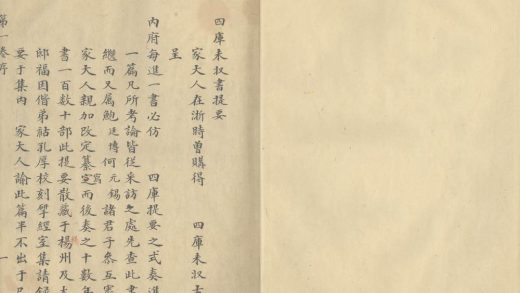 四庫未収書提要
家大人在浙時曾購得 四庫未収古
呈
內府每進一書必仿 四庫提要之式奏進
一篇凡所考論皆從采訪之處先查此書
繼而又屬鮑廷博何元錫諸君子參互審
家大人親加改定纂寫而後奏之十數年
書一百數十部此提要散藏于楊州及大
邸福因偕弟祜孔厚校刻揅經室集請錄
要于集內 家大人諭此篇半不出于己
第一卷序 一